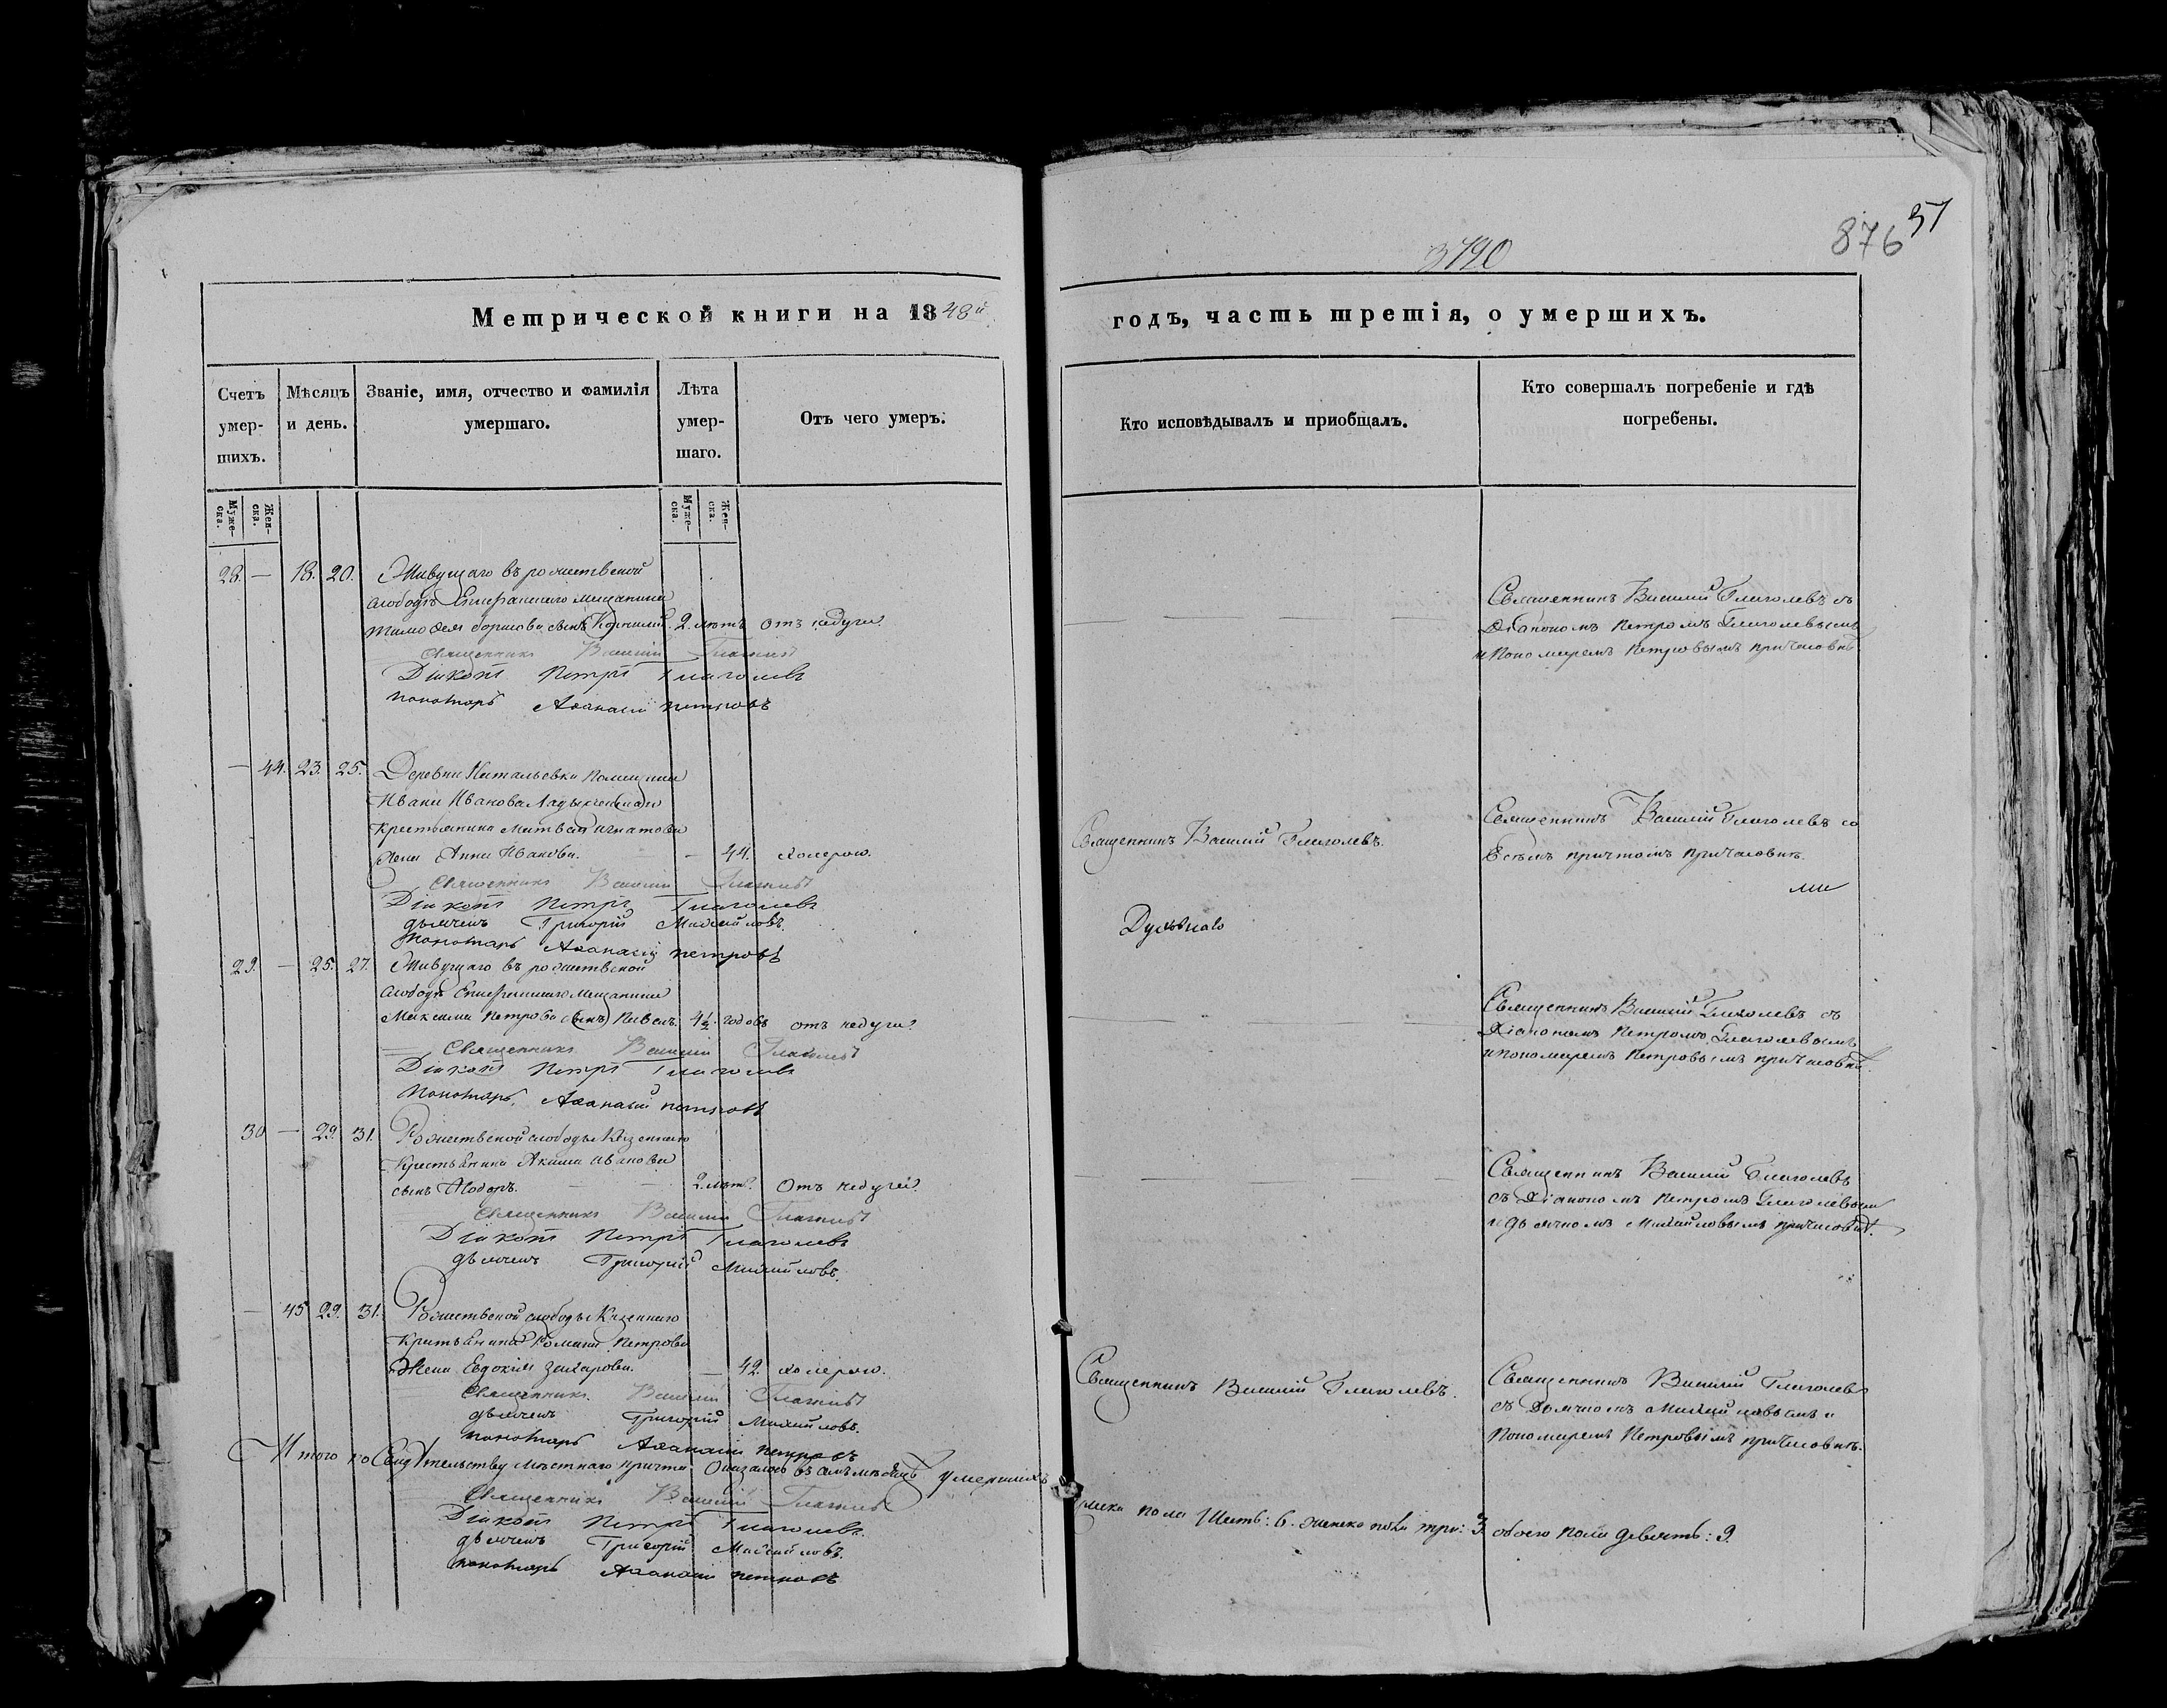 3790
876 51
Метрической книги на 1848й
годъ, часть третія, о умершихъ.
Счетъ умер-шихъ.
Мѣсяцъ и день.
Званіе, имя, отчество и фамилія умершаго.
Лѣта умер-шаго.
Отъ чего умеръ.
Кто исповѣдывалъ и приобщалъ.
Кто совершалъ погребеніе и гдѣ погребены.
Муже-ска.
Жен-ска.
Муже-ска.
Жен-ска.
28. — 18. 20. Живущаго въ рожественой
слободѣ Епифанскаго мещанина
Тимофея борисова сынъ 2. лѣтъ отъ недуги
Священникъ Василій Глаголевъ
Діаконъ Петръ Глаголевъ
Пономарь Афанасій Петровъ
Священникъ Василій Глаголевъ съ
Діакономъ Петромъ Глаголевымъ
и Пономаремъ Петровымъ
— 44. 23. 25. Деревни помещика
Ивана Иванова Ладыженскаго
Крестьянина Матвея Игнатова
жена Анна Иванова. — 44. холерою.
Священникъ Василій Глаголевъ
Діаконъ Петръ Глаголевъ
дьячекъ Григорій Михайловъ.
Пономарь Афанасій Петровъ
Священникъ Василій Глаголевъ.
Священникъ Василій Глаголевъ со
всѣмъ причтомъ
ми
29. — 25. 27. Живущаго въ рожественой
слободѣ Епифанскаго мещанина
Максима Петрова сынъ Павелъ. 4½ годовъ отъ недуги
Священникъ Василій Глаголевъ
Діаконъ Петръ Глаголевъ
Пономарь Афанасій Петровъ
Священникъ Василій Глаголевъ съ
Діакономъ Петромъ Глаголевымъ
и пономаремъ Петровымъ
30 — 29. 31. Рожественой слободы Казеннаго
Крестьянина Акима Иванова
сынъ Ѳедоръ. — — 2. лѣтъ. Отъ недуги.
Священникъ Василій Глаголевъ
Діаконъ Петръ Глаголевъ
дьячекъ Григорій Михайловъ.
Священникъ Василій Глаголевъ
съ Діакономъ Петромъ Глаголевымъ
и дьячкомъ Михайловымъ
— 45 29. 31. Рожественой слободы Казеннаго
Петрова
Жена Евдокія Захарова. — 42. холерою.
Священникъ Василій Глаголевъ
дьячекъ Григорій Михайловъ.
Пономарь Афанасій Петровъ
Священникъ Василій Глаголевъ.
Священникъ Василій Глаголевъ
съ Дьячкомъ Михайловымъ и
Пономаремъ Петровымъ
Итого по Свидѣтельству мѣстнаго причта оказалось въ умершихъ
пола Шесть: 6. женска пола три: 3. обоего пола девять: 9.
Священникъ Василій Глаголевъ
Діаконъ Петръ Глаголевъ
дьячекъ Григорій Михайловъ.
Пономарь Афанасій Петровъ